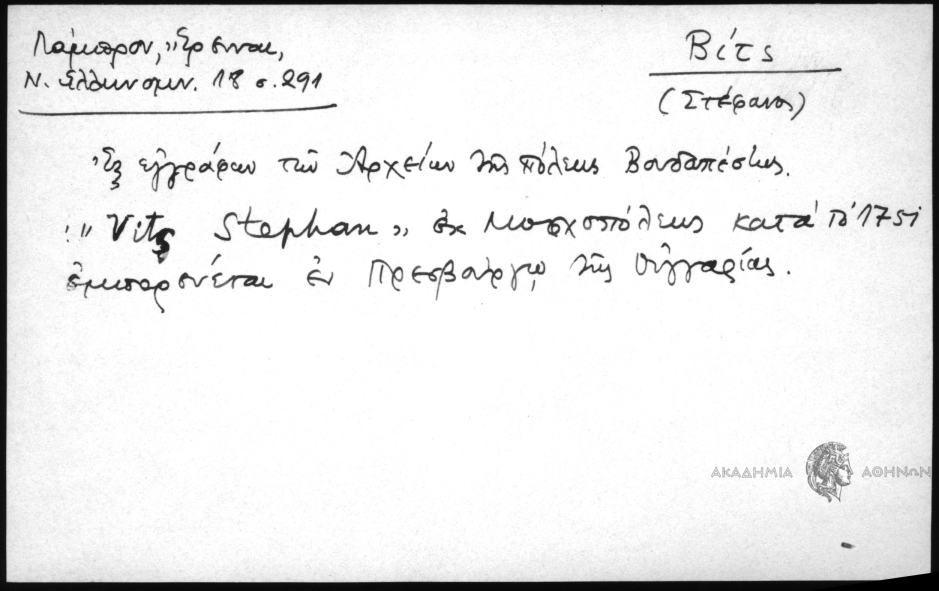 Λάμπρου, "Ἔρευναι,
Ν. Ἑλληνομν. 18 σ. 291
Βίτς
(Στέφανος)
Ἐξ ἐγγράφων τῶν Ἀρχείων τῆς πόλεως Βουδαπέστης.
"Vits Stephan" ἐκ Μοσχοπόλεως κατὰ τὸ 1751
ἐμπορεύεται ἐν Πρεσβούργῳ τῆς Οὑγγαρίας.
ΑΚΑΔΗΜΙΑ ΑΘΗΝΩΝ